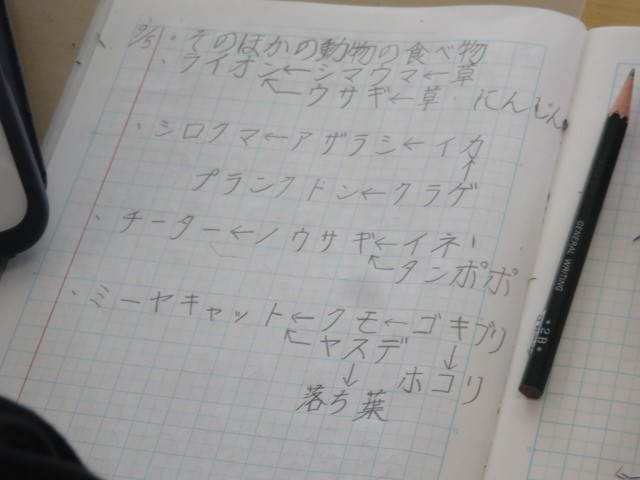 9/5・そのほかの動物の食べ物
・ライオン←シマウマ←草
↖ウサギ←草・にんじん
・シロクマ←アザラシ←イカ
↑
プランクトン←クラゲ
・チーター←ノウサギ←イネ
↖タンポポ
・ミーヤキャット←クモ←ゴキブリ
↖ヤスデ ↓
↓ ホコリ
落ち葉
GENERAL WRITING
・2B・